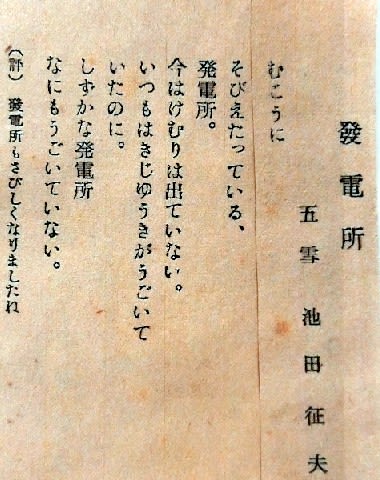 發電所
五雪 池田征夫
むこうに
そびえたっている、
発電所。
今はけむりは出ていない。
いつもはきじゆうきがうごいて
いたのに。
しずかな発電所
なにもうごいていない。
(評) 發電所もさびしくなりましたね